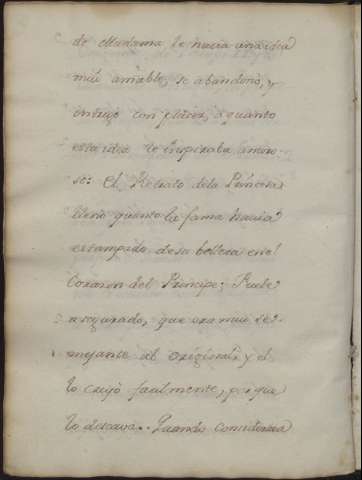 de Madama le hacia una idea
mui amable, se abandonó, y
entregó con placer, a quanto
esta idea le inspiraba amoro-
so: El Retrato dela Princesa
lleno quanto la fama havia
estampado desu belleza enel
Corazon del Principe; Fuele
asegurado, que era mui se-
mejante al original, y el
lo creyó facilmente, porque
lo deseava. Quando considerava